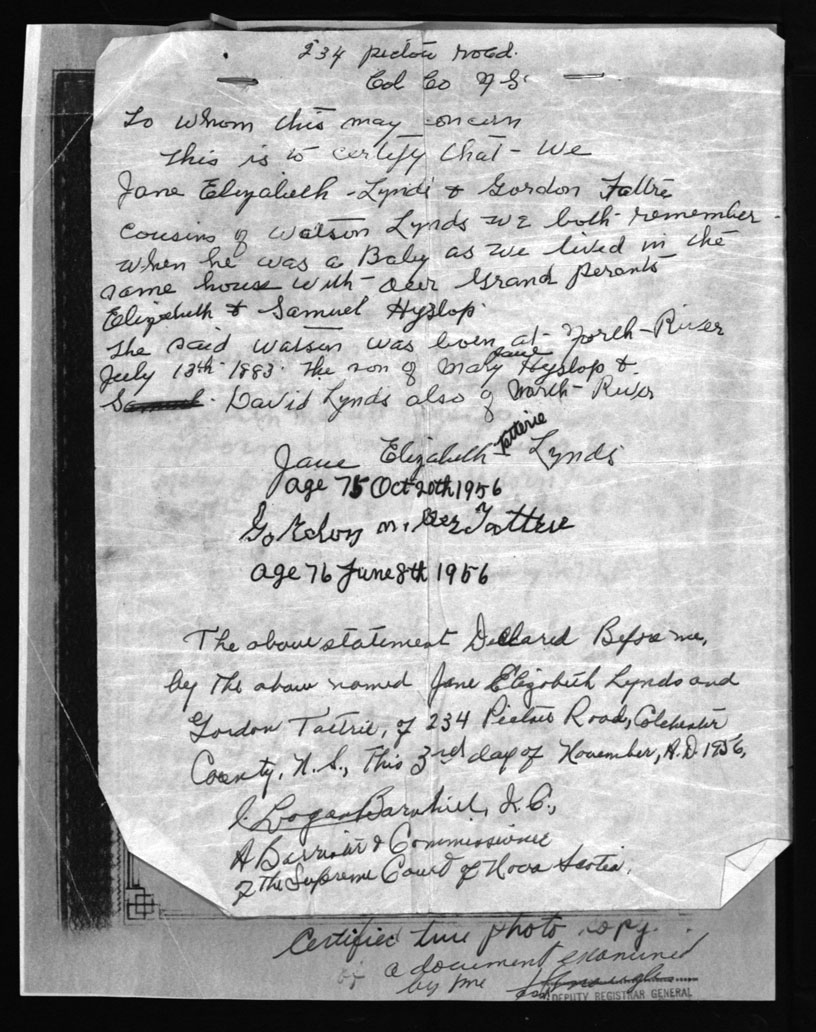 234 pictou road.
Col Co N S.
To whom this may concern
This is to certify that - we
Jane Elizabeth - Lynds & Gordon Tattre
cousins of Watson Lynds we both - remember -
when he was a Baby as we lived in the
same house with - our Grand perents
Elizabeth & Samuel Hyslop.
The said Watson was born at - North - River
July 13th 1883. The son of Mary Jane Hyslop &
David Lynds also of North - River
Jane Elizabeth Tatterie Lynds
age 75 Oct 20th 1956
Gordon Tattrie
age 76 June 8th 1956
The above statement Declared Before me,
by The above named Jane Elizabeth Lynds and
Gordon Tattrie, of 234 Pictou Road, Colchester
County, N.S., This 3rd day of November, A.D. 1956,
Logan Barnhill,
A Barrister & Commissioner
of The Supreme Court of Nova Scotia.
Certified true photo copy.
of a document examined
by me
DEPUTY REGISTRAR GENERAL